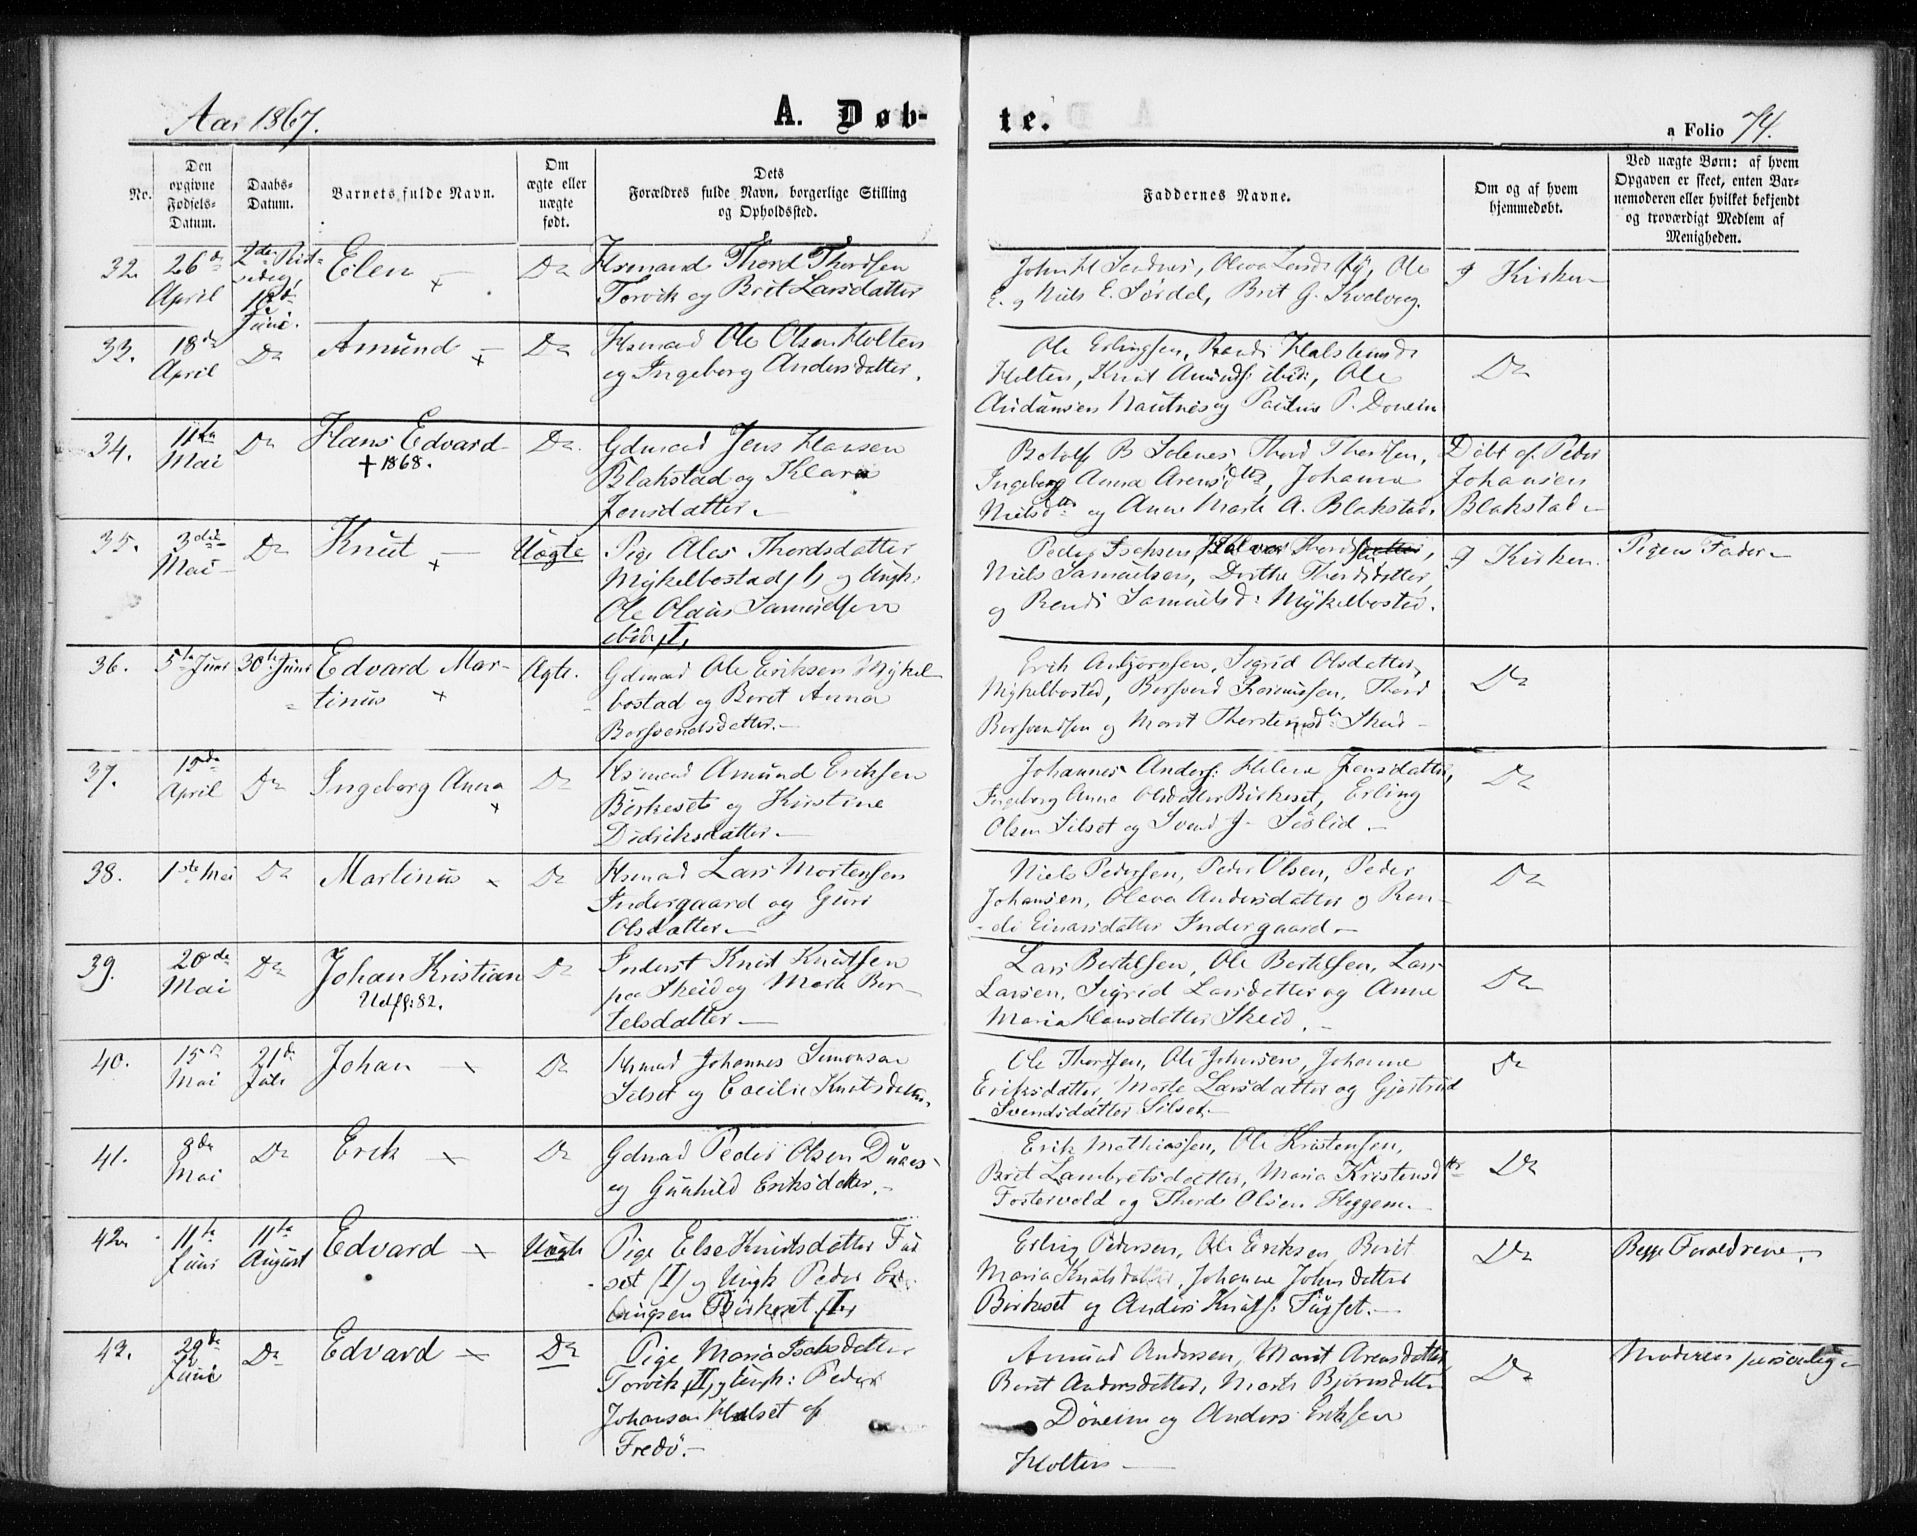 Aar 1867.
A. Døb-
te.
a Folio 74.
No.
Den opgivne Fødsels-Datum.
Daabs-Datum.
Barnets fulde Navn.
Om ægte eller uægte født.
Dets Forældres fulde Navn, borgerlige Stilling og Opholdssted.
Faddernes Navne.
Om og af hvem hjemmedøbt.
Ved uægte Børn: af hvem Opgaven er skeet, enten Barnemoderen eller hvilket bekjendt og troværdigt Medlem af Menigheden.
32. 26de April 2den 10de Juni. Elen Do
Thord Thordsen
Torvik og Brit Larsdatter
Ole
E. og Niels E. Sørdal, Brit G.
I Kirken
33. 18de April Do Amund Do
Ole Olsen Holten
og Ingeborg Andersdatter.
Ole Erlingsen,
Holten, Knut Amunds: ibid:, Ole
Audunsen Nautnes og Paulus P. Doneim
Do
34. 11te Mai Do Hans Edvard Do
† 1868.
Gdmand Jens Hansen
Blakstad og Klara
Jonsdatter.
B Solenes, Thord Thordsen,
Ingeborg Anna Johanna
Nielsdtr og Anne Marte A. Blakstad.
Døbt af Peder
Johansen
Blakstad
35. 3die Mai Do Knut Uægte
Pige Thordsdatter
Mykelbostad og Ungk:
Ole Olaus Samuelsen
ibid: I,
Peder
Niels Samuelsen, Dorthe Thordsdatter,
og Rendi Samuelsd: Mykelbostad.
I Kirken.
Pigens Fader
36. 5te Juni 30te Juni Edvard Mar-
tinus
Ægte.
Gdmand Ole Eriksen Mykel
bostad og Beret Anna
Bersvendsdatter.
Erik Sigrid Olsdatter,
Mykelbostad, Bersvend Rasmussen, Thord
Bersvendsen og Marit Skeid
Do
37. 15de April Do Ingeborg Anna Do
Amund Eriksen
Birkeset og Kirstine
Didriksdatter
Johannes Anders: Helene Jensdatter,
Ingeborg Anna Olsdatter Birkeset, Erling
Olsen Silset og Svend J. Sislid.
Do
38. 1ste Mai Do Martinus Do
Lars Mortensen
Indergaard og Guri
Olsdatter
Niels Pedersen, Peder Olsen, Peder
Johansen, Oleva Andersdatter og Ran-
di Einarsdatter Indergaard
Do
39. 20de Mai Do Johan Kristian Do
Inderst Knut Knutsen
paa Skeid og Marte Ber-
telsdatter
Lars Bertelsen, Ole Bertelsen, Lars
Larsen, Sigrid Larsdatter og Anne
Maria Hansdatter Skeid.
Do
40. 15de Mai 21de Juli Johan Do
Johannes Simonsen
Silset og Caecilie Knutsdatter.
Ole Thordsen, Ole Johnsen, Johanne
Eriksdatter, Marte Larsdatter og Gjertrud
Svendsdatter Silset
Do
41. 8de Mai Do Erik Do
Gdmad Peder Olsen
og Gunhild Eriksdatter.
Erik Mathiassen, Ole Kristensen,
Brit Lambretsdatter, Maria Kristensdtr
Fostervold og Thorde Olsen Heggem.
Do
42. 11te Juni 11te August Edvard Uægte
Pige Else Knutsdatter Fur
set (I) og Ungk Peder Er
lingsen Birkeset (I)
Erling Pedersen, Ole Eriksen, Berit
Maria Knutsdatter, Johanne Johnsdatter
Birkeset og Anders Knuts: Furset.
Do
Begge Forældrene.
43. 29de Juni Do Edvard Do
Pige Maria Isaksdatter
Torvik II, og Ungk: Peder
Johansen Halset af
Fredø.
Amund Andersen, Marit Arensdatter
Berit Andersdatter, Marte Bjørnsdatter
Døneim og Anders Eriksen
Holten
Do
Moderen personlig